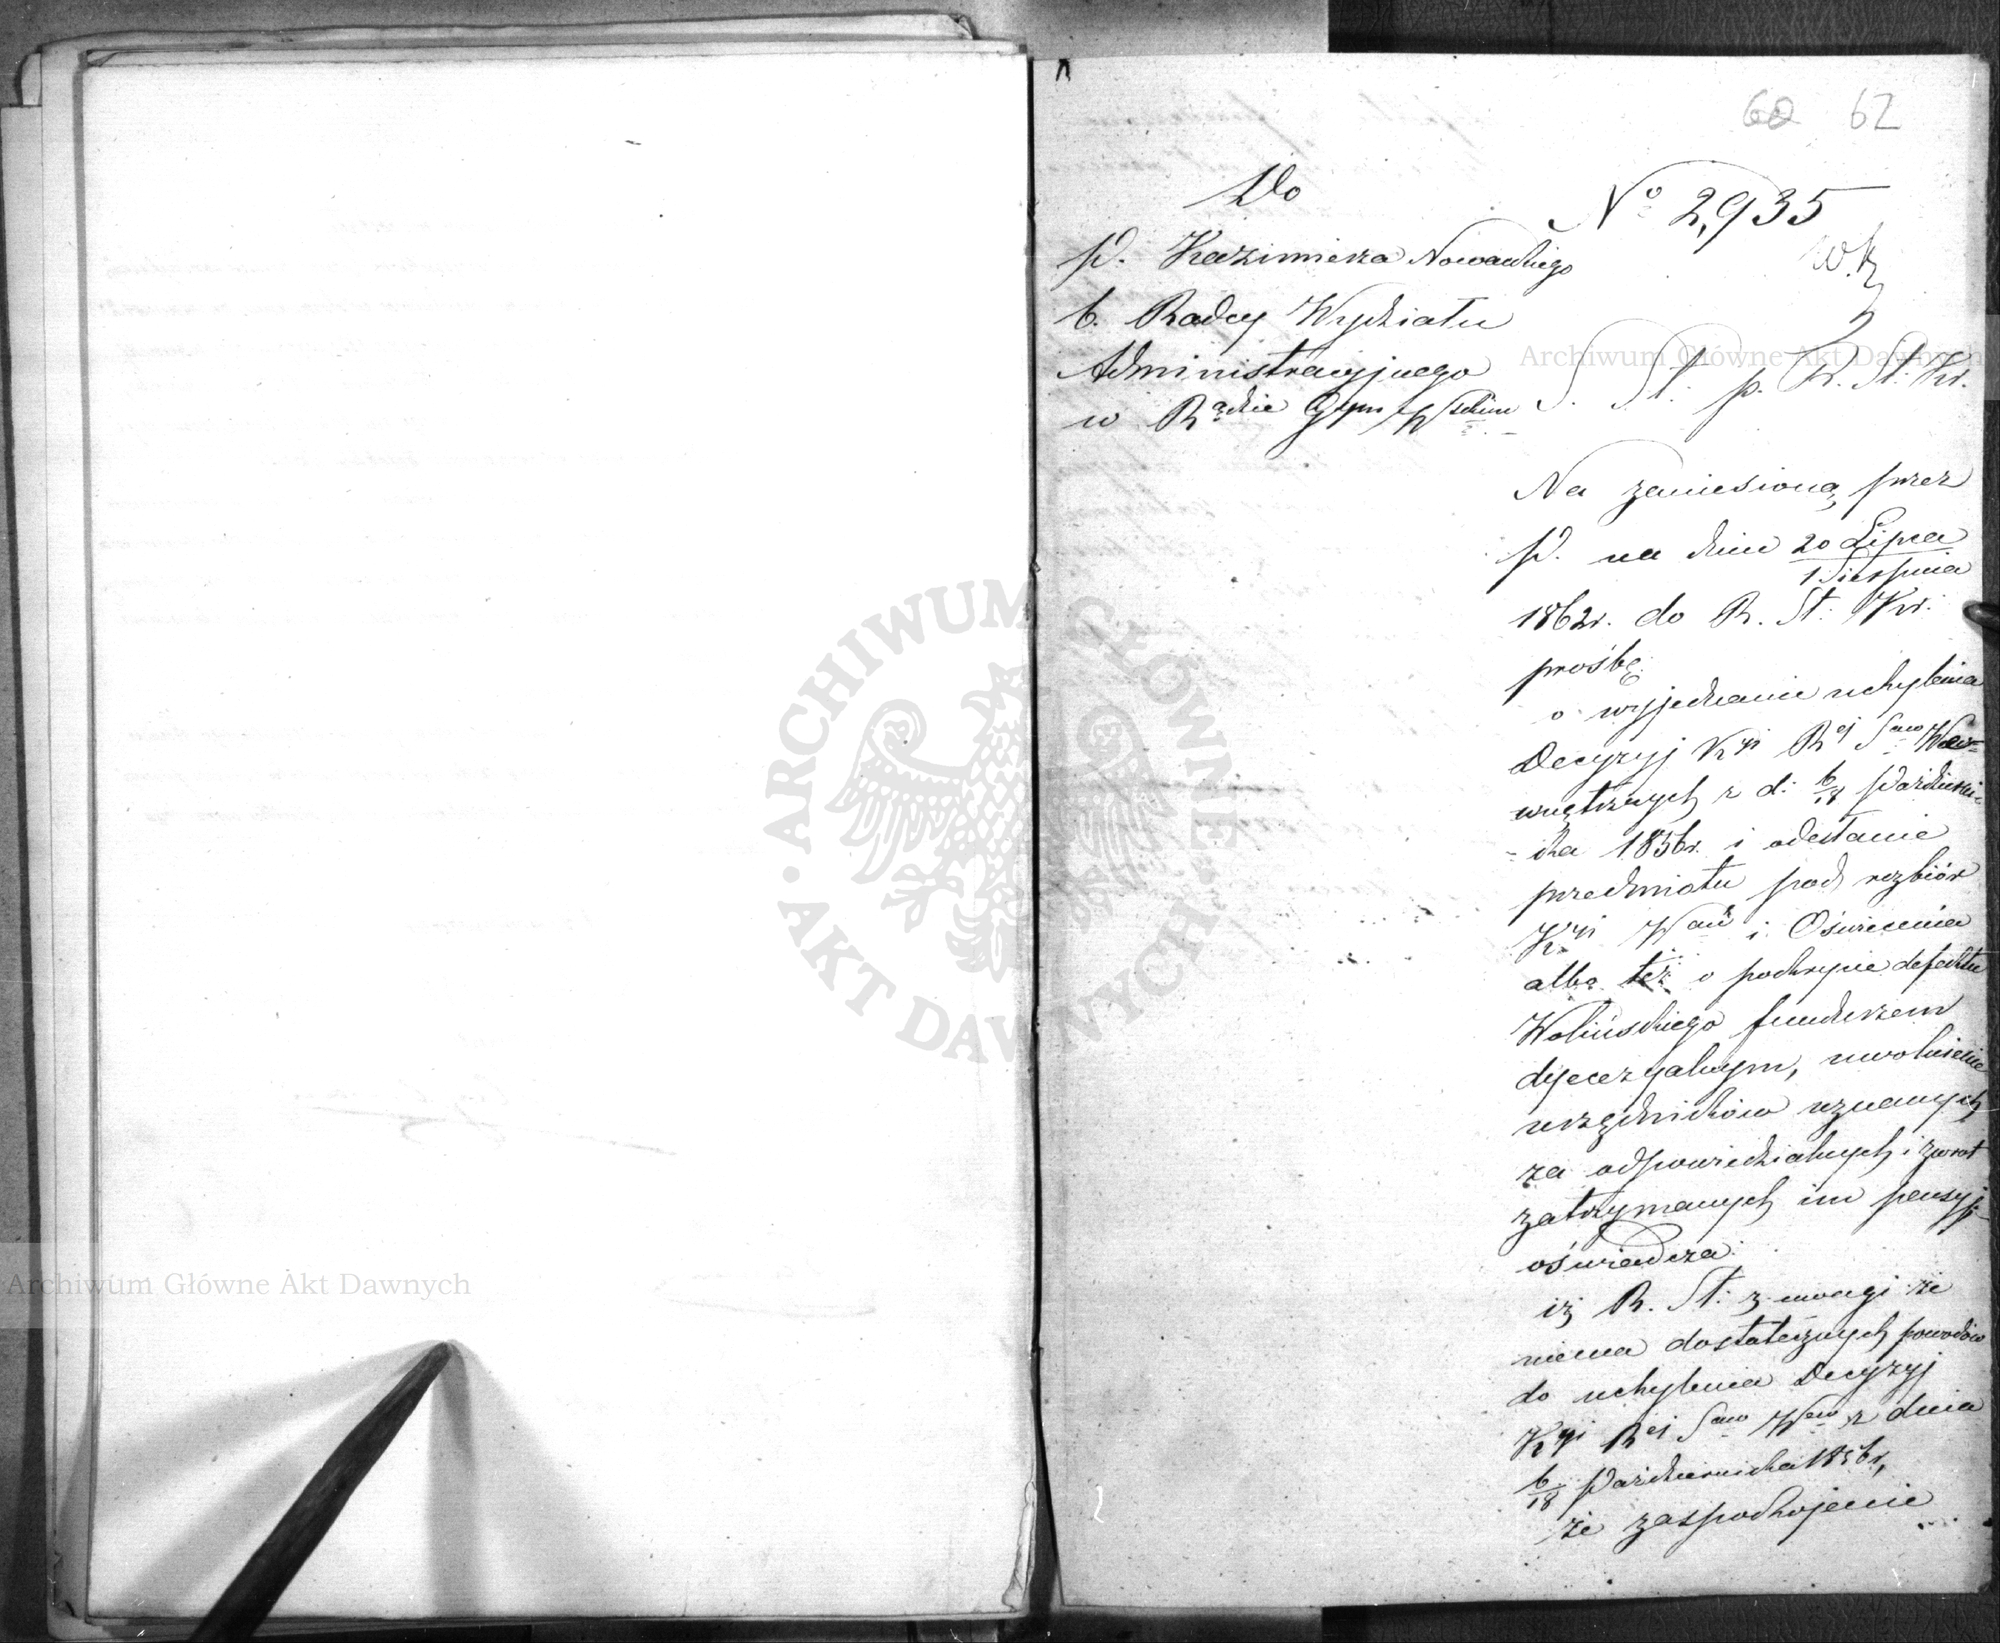 60 62
Do
P. Kazimierza Nowackiego
b. Radcy Wydziału
Administracyjnego
w Rządzie Gym
No 2,935
S. St. p. R. St. Kr.
Na zaniesioną przez
P. na dniu 20 Lipca
1 Sierpnia
1862r. do R. St. Kr.
prośbę
o wyjednanie uchylenia
Decyzyj Kyi Rej
wnętrznych z d. 6/18 Październi-
ika 1856r. i odesłanie
przedmiotu pod rozbiór
Kyi Wań i Oświecenia
albo też o pokrycie defektu
Wolińskiego funduszem
dyecezyalnym, uwolnienie
urzędników uznanych
za odpowiedzialnych i zwrot
zatrzymanych im pensyj
oświadcza:
iż R. St. z uwagi że
niema dostatecznych powodów
do uchylenia Decyzyj
Kyi Rej z dnia
6/18 Października 1856r,
że zaspokojenie
ARCHIWUM GŁÓWNE AKT DAWNYCH
Archiwum Główne Akt Dawnych
Archiwum Główne Akt Dawnych